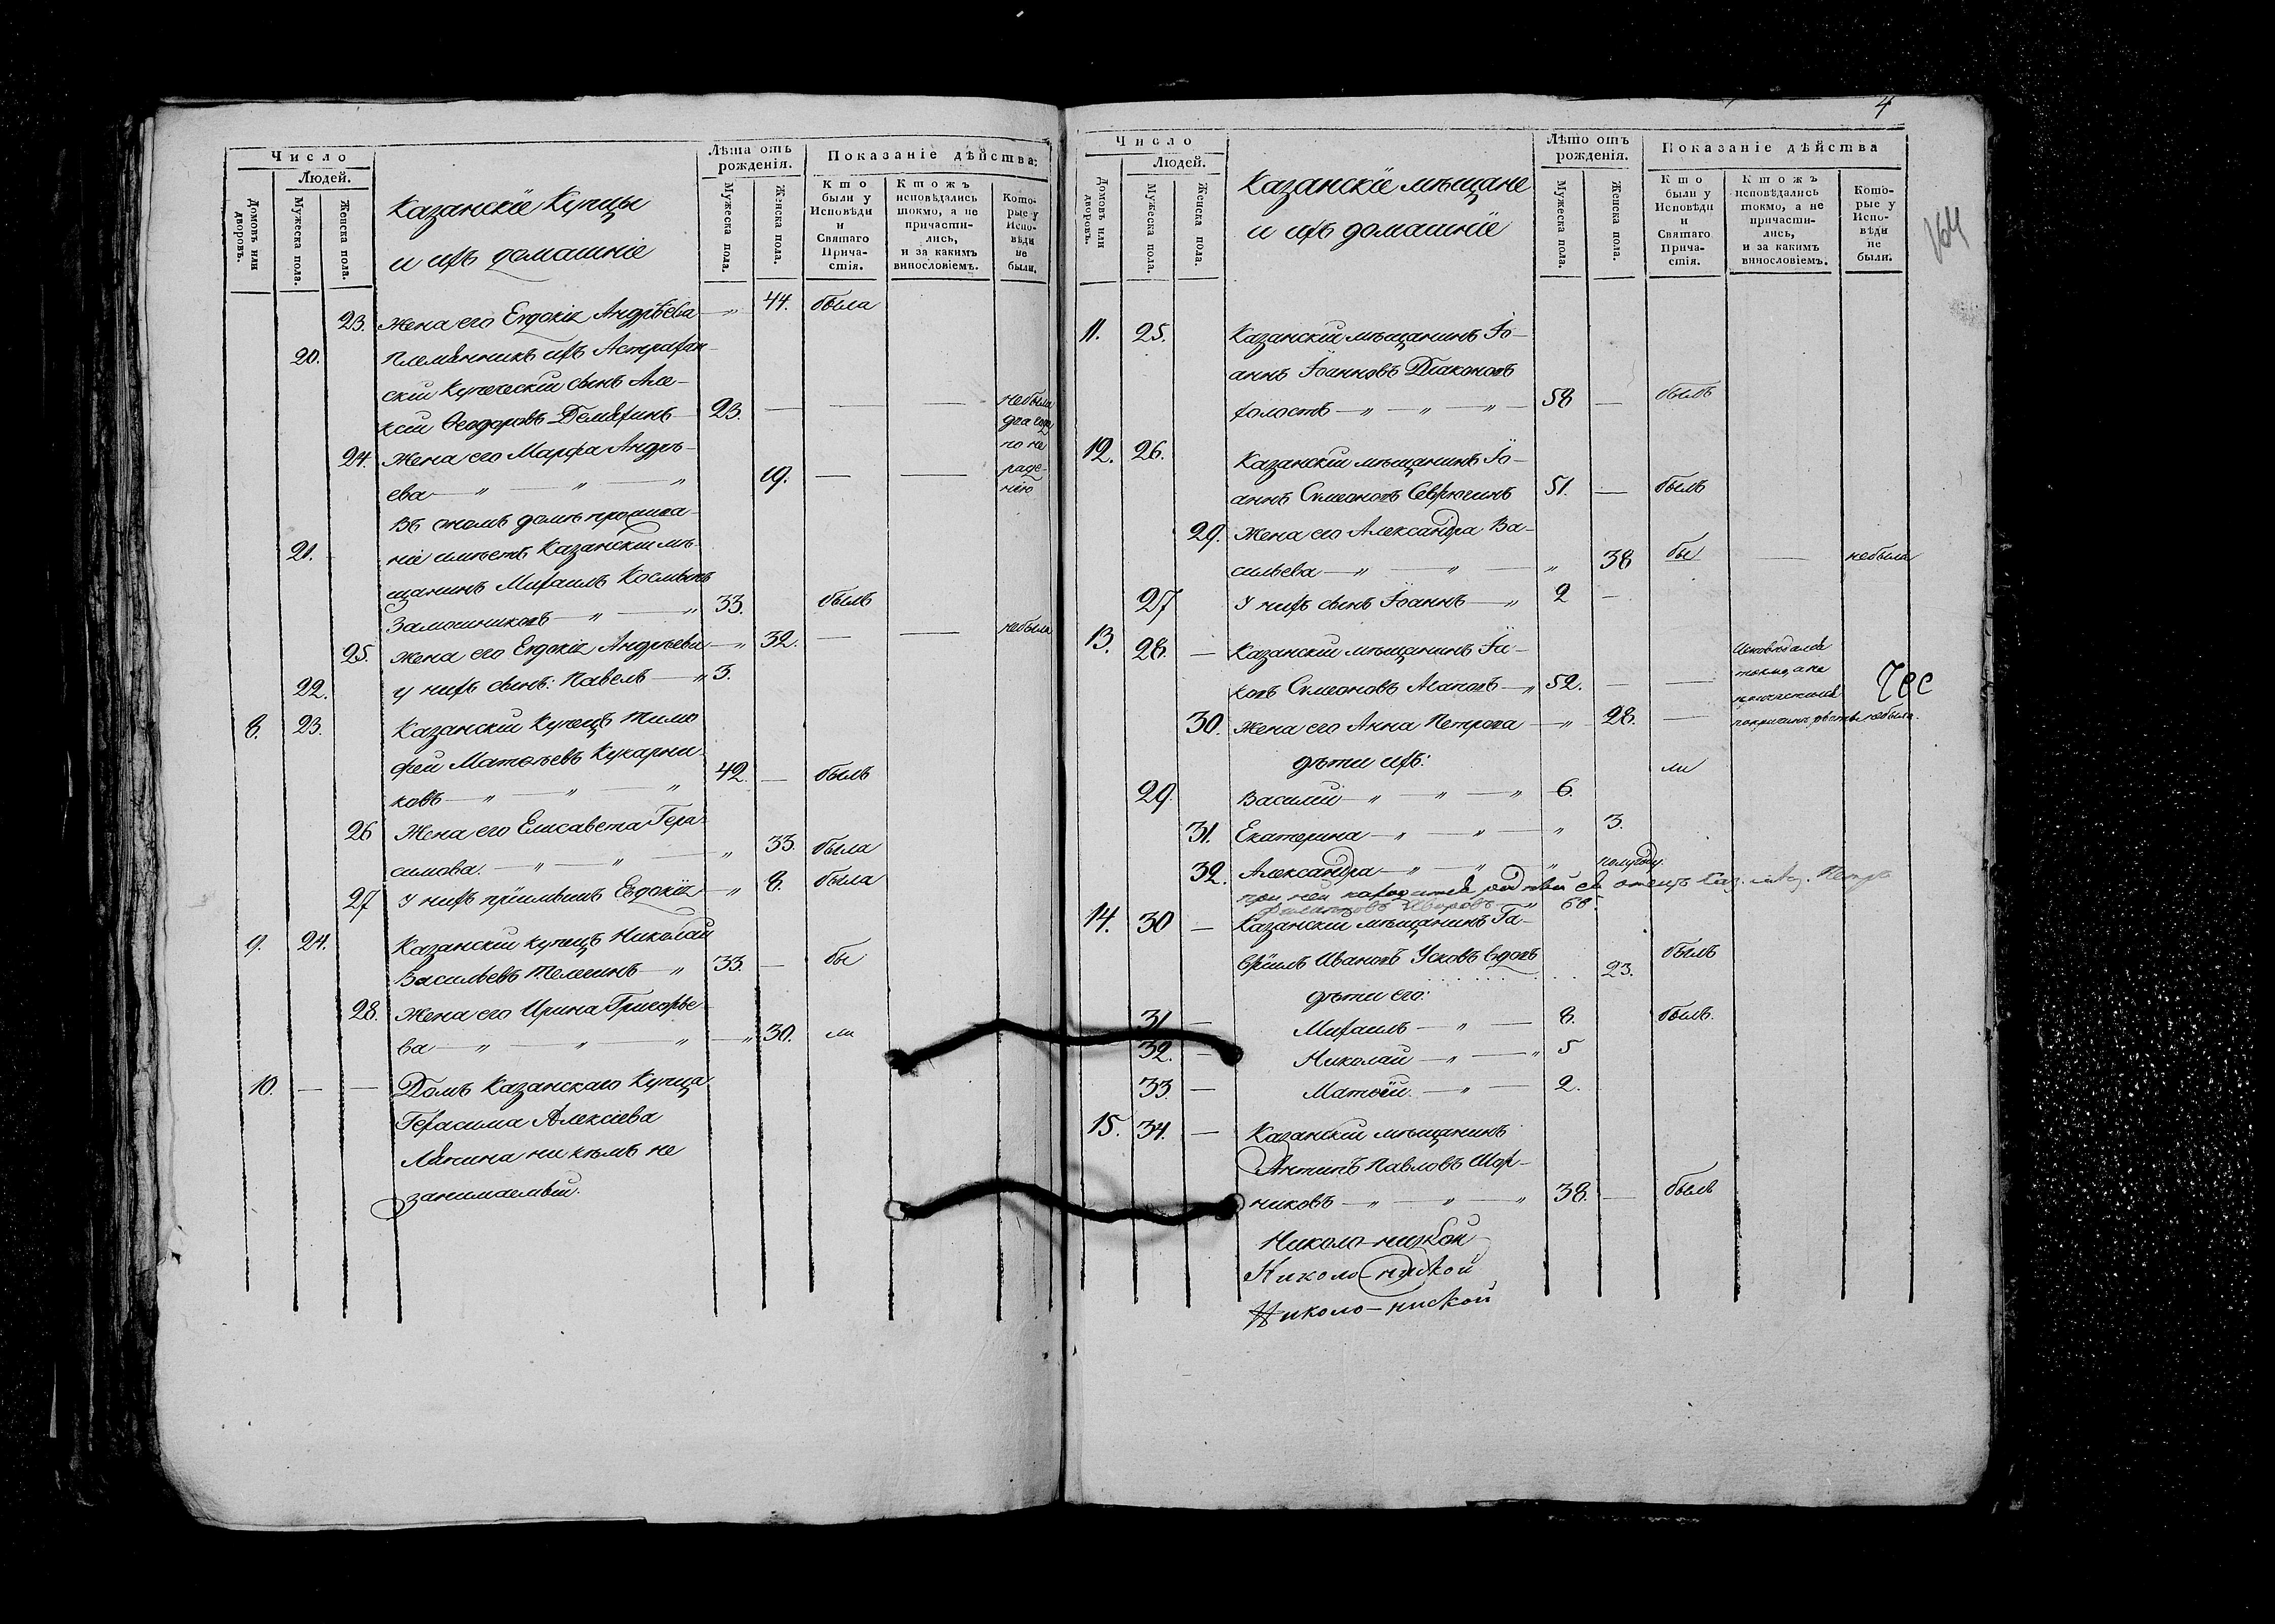 Число
Людей.
Домовъ или дворовъ.
Мужеска пола.
Женска пола.
Казанскіе Купцы
и ихъ домашніе
Лѣта отъ рожденія.
Мужеска пола.
Женска пола.
Показаніе дѣйства:
Кто были у Исповѣди и Святаго Причастія.
Ктожъ исповѣдались токмо, а не причастились, и за какимъ винословіемъ.
Которые у Исповѣди не были.
23. Жена его Евдокіа Андрѣева — „ 44. была
20. Племянникъ ихъ Астрахан-
скій Купеческій сынъ Але-
ксій Ѳеодоровъ Демяхинъ 23. — — — небыли
два года
24. Жена его Марфа Андрѣ- по не
ева — „ — „ — „ 19. — — раде-
нію
Въ ономъ домѣ прожива-
21. ніе имѣетъ Казанскій мѣ-
щанинъ Михаилъ Космынъ
Замошниковъ — „ — „ 33. былъ
25. Жена его Евдокіа Андрѣева — „ 32. — — небыла
22. у нихъ сынъ: Павелъ — „ 3.
8. 23. Казанскій Купецъ Тимо
фей Матѳѣевъ Кукарни-
ковъ — „ — „ — „ 42. — былъ
26 Жена его Елисавета Гера-
симова. — „ — „ — „ 33. была
27 У нихъ пріимышъ Евдокіа — „ 8. была
9. 24. Казанскій купецъ Николай
Васильевъ Телегинъ — „ 33. — бы
28. Жена его Ирина Григорье-
ва — „ — „ — „ — „ 30. ли
10. — — Домъ Казанскаго Купца
Герасима Алексіева
Ляпина ни кѣмъ не
занимаемый.
4
164
Число
Людей.
Домовъ или дворовъ.
Мужеска пола.
Женска пола.
Казанскіе мѣщане
и ихъ домашніе
Лѣто отъ рожденія.
Мужеска пола.
Женска пола.
Показаніе дѣйства
Кто были у Исповѣди и Святаго Причастія.
Ктожъ исповѣдались токмо, а не причастились, и за какимъ винословіемъ.
Которые у Исповѣди не были.
11. 25. Казанскій мѣщанинъ Іо-
аннъ Іоанновъ Діаконовъ
холостъ — „ — „ — „ — 58 — былъ
12. 26. Казанскій мѣщанинъ Іо-
аннъ Симеоновъ Севрюгинъ 51. — былъ
29. Жена его Александра Ва-
сильева — „ — „ — „ 38 бы — небыла
27 У нихъ сынъ Іоаннъ — „ 2 —
13. 28. — Казанскій мѣщанинъ Іа- Исповѣдался
ковъ Симеоновъ Агаповъ — „ 52. — — токмо, а не
причастился
30. Жена его Анна Петрова — „ 28. — небыла.
дѣти ихъ: ли
29. Василій — „ — „ — „ 6.
31. Екатерина — „ — „ — „ 3.
32. Александра — „ — „ „ полугоду.
при ней находится родный ея отецъ Каз. мѣщ. Петръ
„ 68.
14. 30 — Казанскій мѣщанинъ Га-
вріилъ Ивановъ Усковъ вдовъ 23. былъ
дѣти его:
31 — Михаилъ — „ — 8. былъ.
32. — Николай — „ — „ 5
33 — Матѳей. — „ — 2.
15. 34. — Казанскій мѣщанинъ
Антипъ Павловъ Шор-
никовъ — „ — „ — „ 38. — былъ
Николо-низкой
Николо-ниской
Николо-ниской